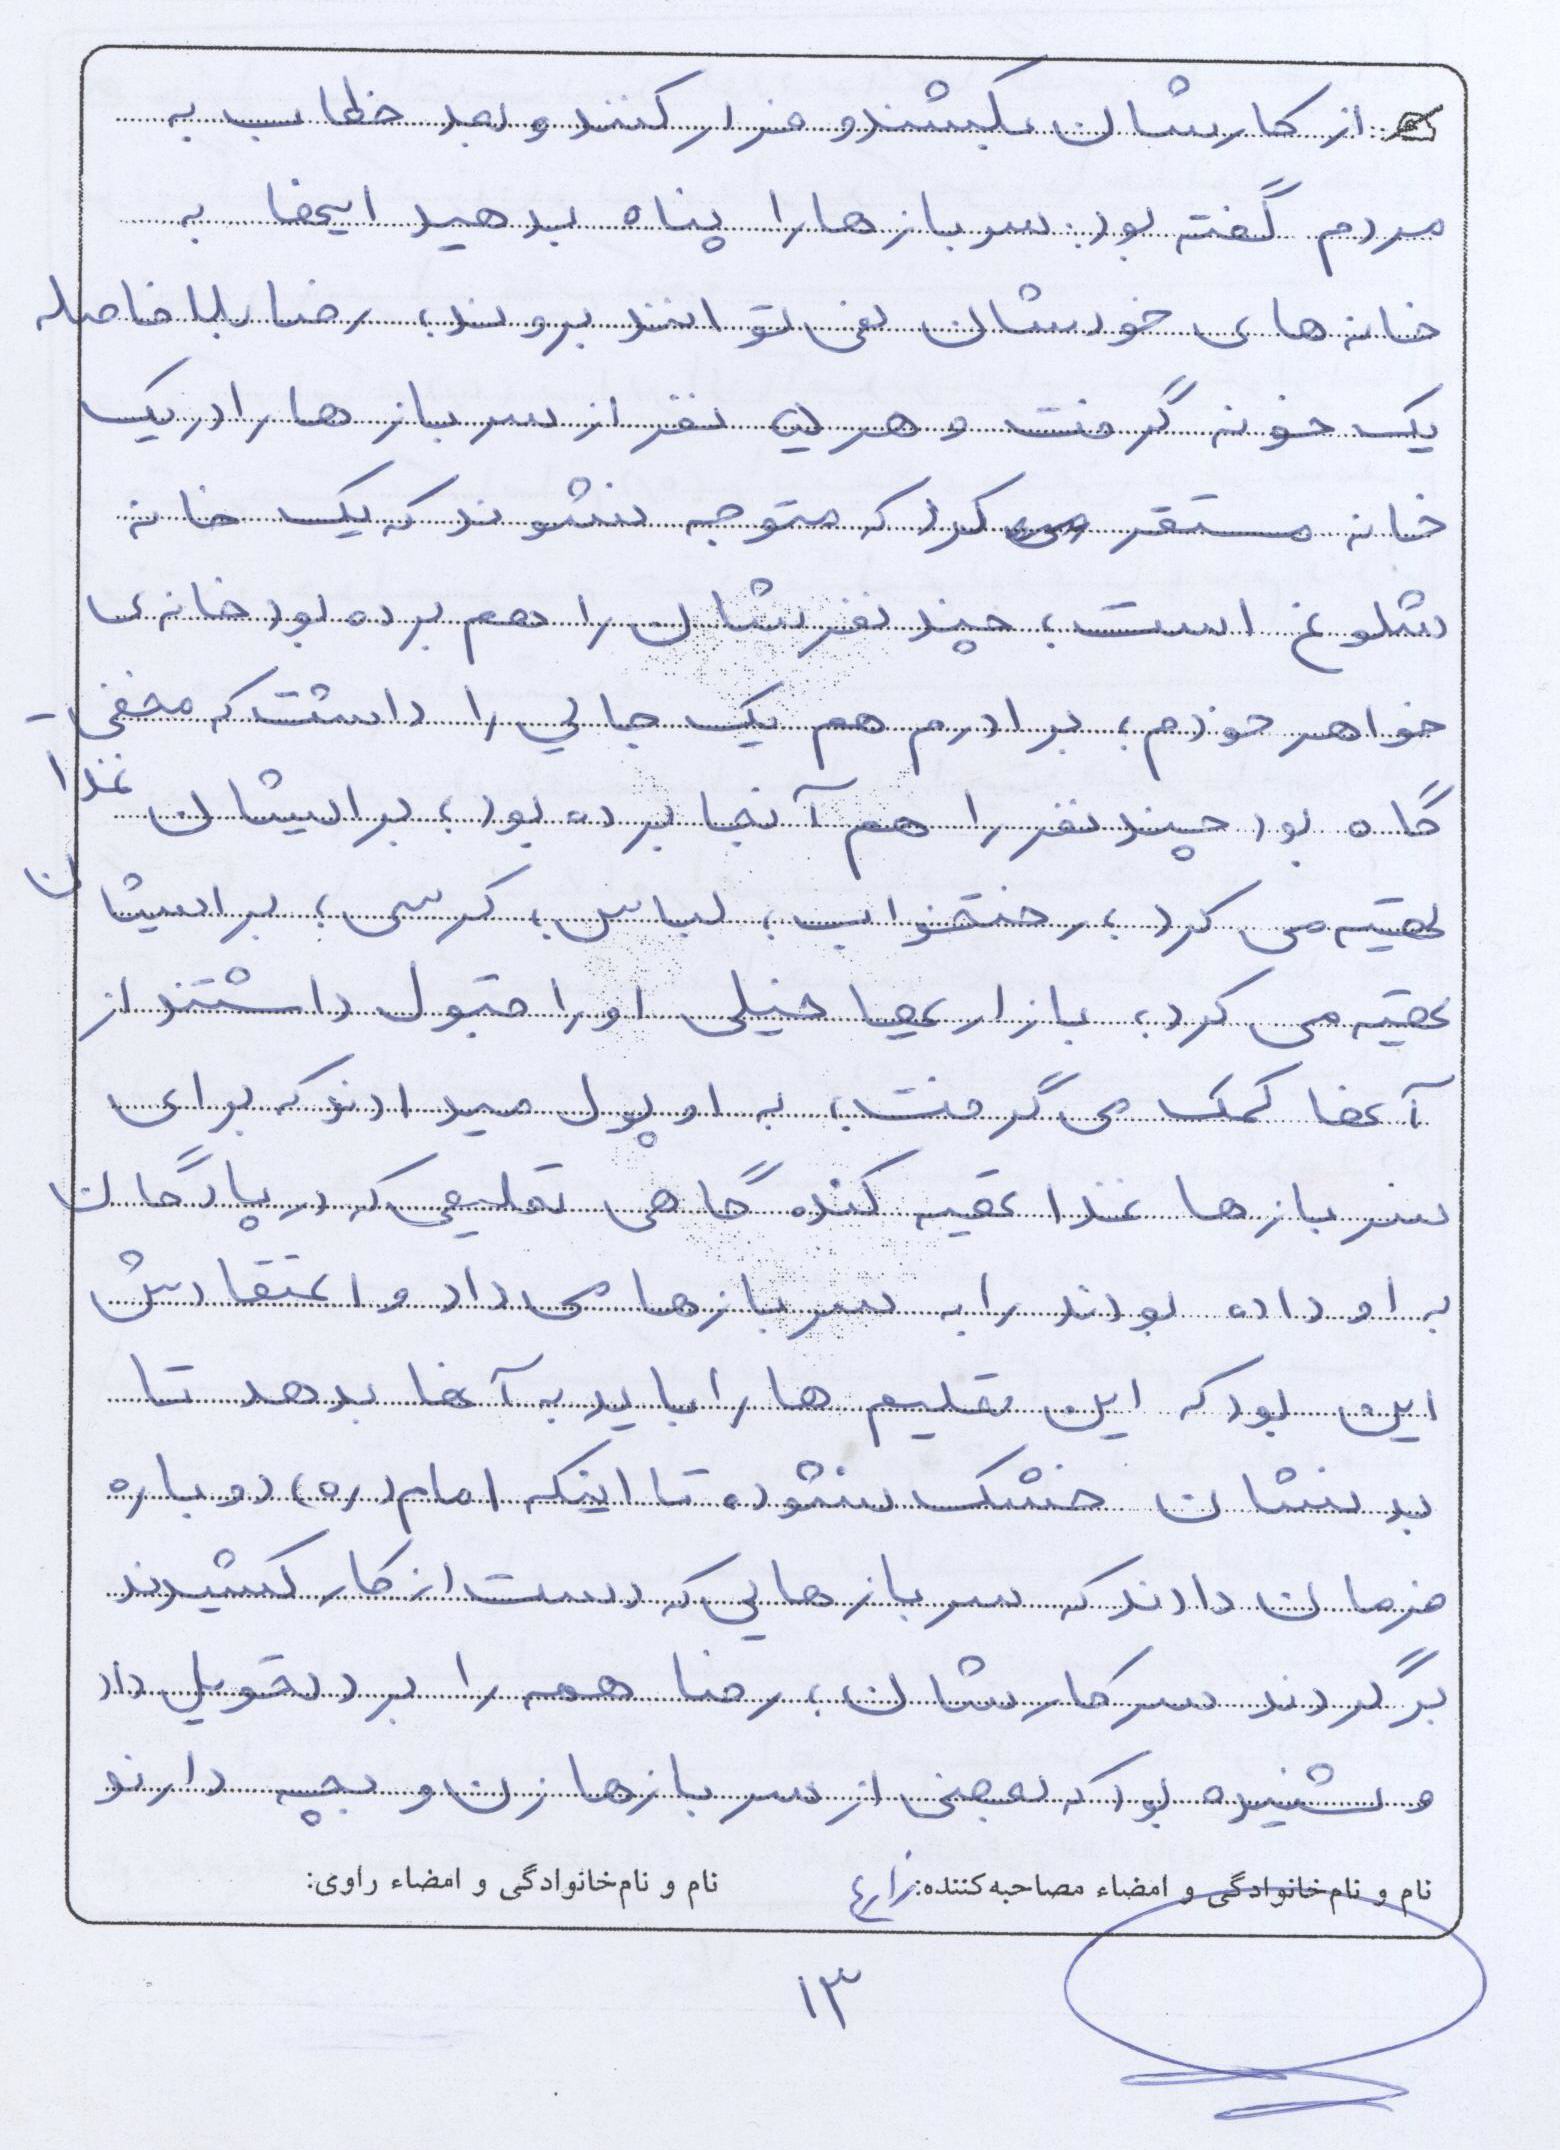 از کارشان بکشند و فرار کنند و بعد خطاب به
مردم گفته بود: سربازها را پناه بدهید اینها به
خانه های خودشان نمی توانند بروند، رضا بلافاصله
یک خونه گرفت و هر ۵ نفر از سربازها را در یک
خانه مستقر می کرد که متوجه نشوند که یک خانه
شلوغ است، چند نفرشان را هم برده بود خانه ی
خواهر خودم، برادرم هم یک جایی را داشت که مخفی-
گاه بود چند نفر را هم آنجا برده بود، برایشان غذا
تهیه می کرد، رختخواب، لباس، کرسی، برایشان
تهیه می کرد، بازاریها خیلی او را قبول داشتند از
آنها کمک می گرفت، به او پول میدادند که برای
سربازها غذا تهیه کنده گاهی تعلیمی که در پادگان
به او داده بودند را به سربازها می داد و اعتقادش
این بود که این تعلیم ها را باید به آنها بدهد تا
بدنشان خشک نشود، تا اینکه امام (ره) دوباره
فرمان دادند که سربازهایی که دست از کار کشیدند
برگردند سر کارشان، رضا همه را برد تحویل داد
و شنیده بود که بعضی از سربازها زن و بچه دارند
نام و نام‌خانوادگی و امضاء مصاحبه‌کننده: زارع
نام و نام‌خانوادگی و امضاء راوی:
۱۳